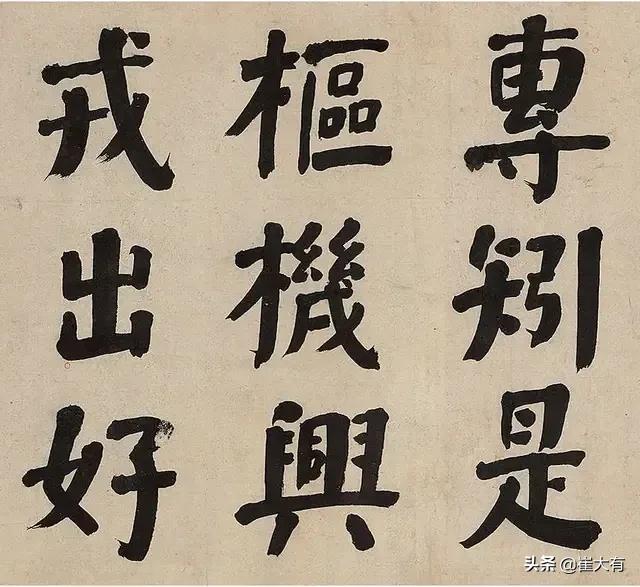 專矧是
樞機興
戎出好
头条 @崔大有